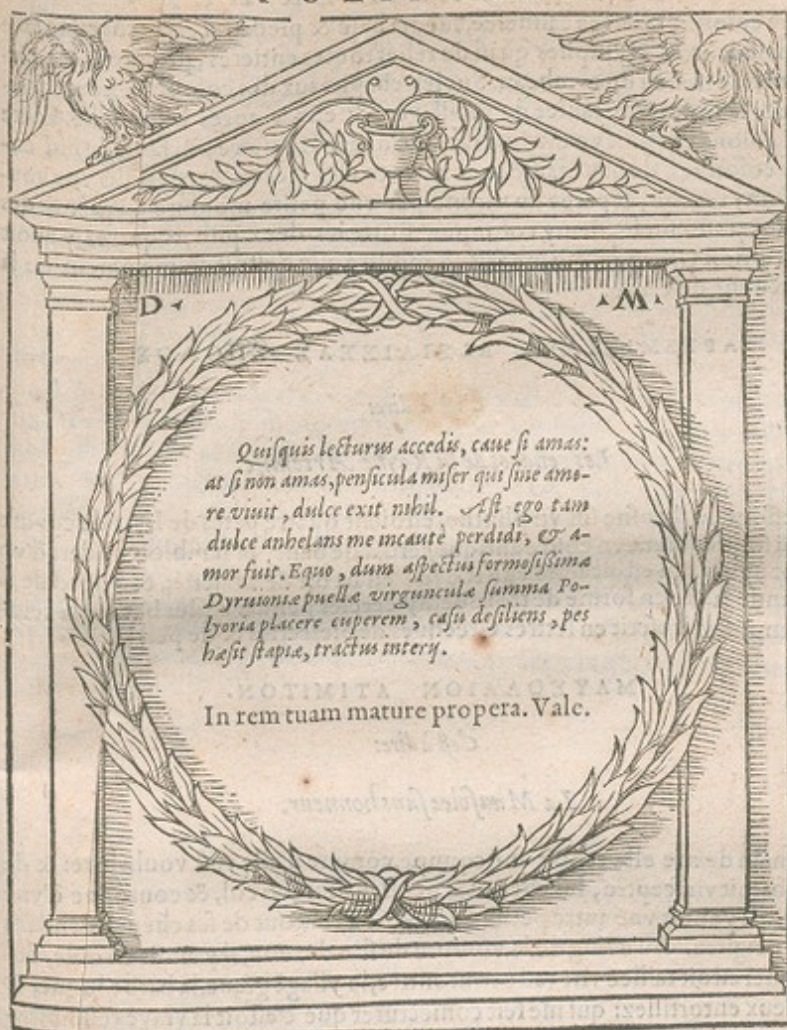 D M
Quiſquis lecturus accedis, caue ſi amas:
at ſi non amas, penſicula miſer qui ſine amo-
re viuit, dulce exit nihil. Aſt ego tam
dulce anhelans me incautè perdidi, & a-
mor fuit. Equo, dum aſpectui formoſißimæ
Dyruioniæ puellæ virgunculæ ſumma Po-
lyoria placere cuperem, caſu deſiliens, pes
hæſit ſtapiæ, tractus interij.
In rem tuam mature propera. Vale.